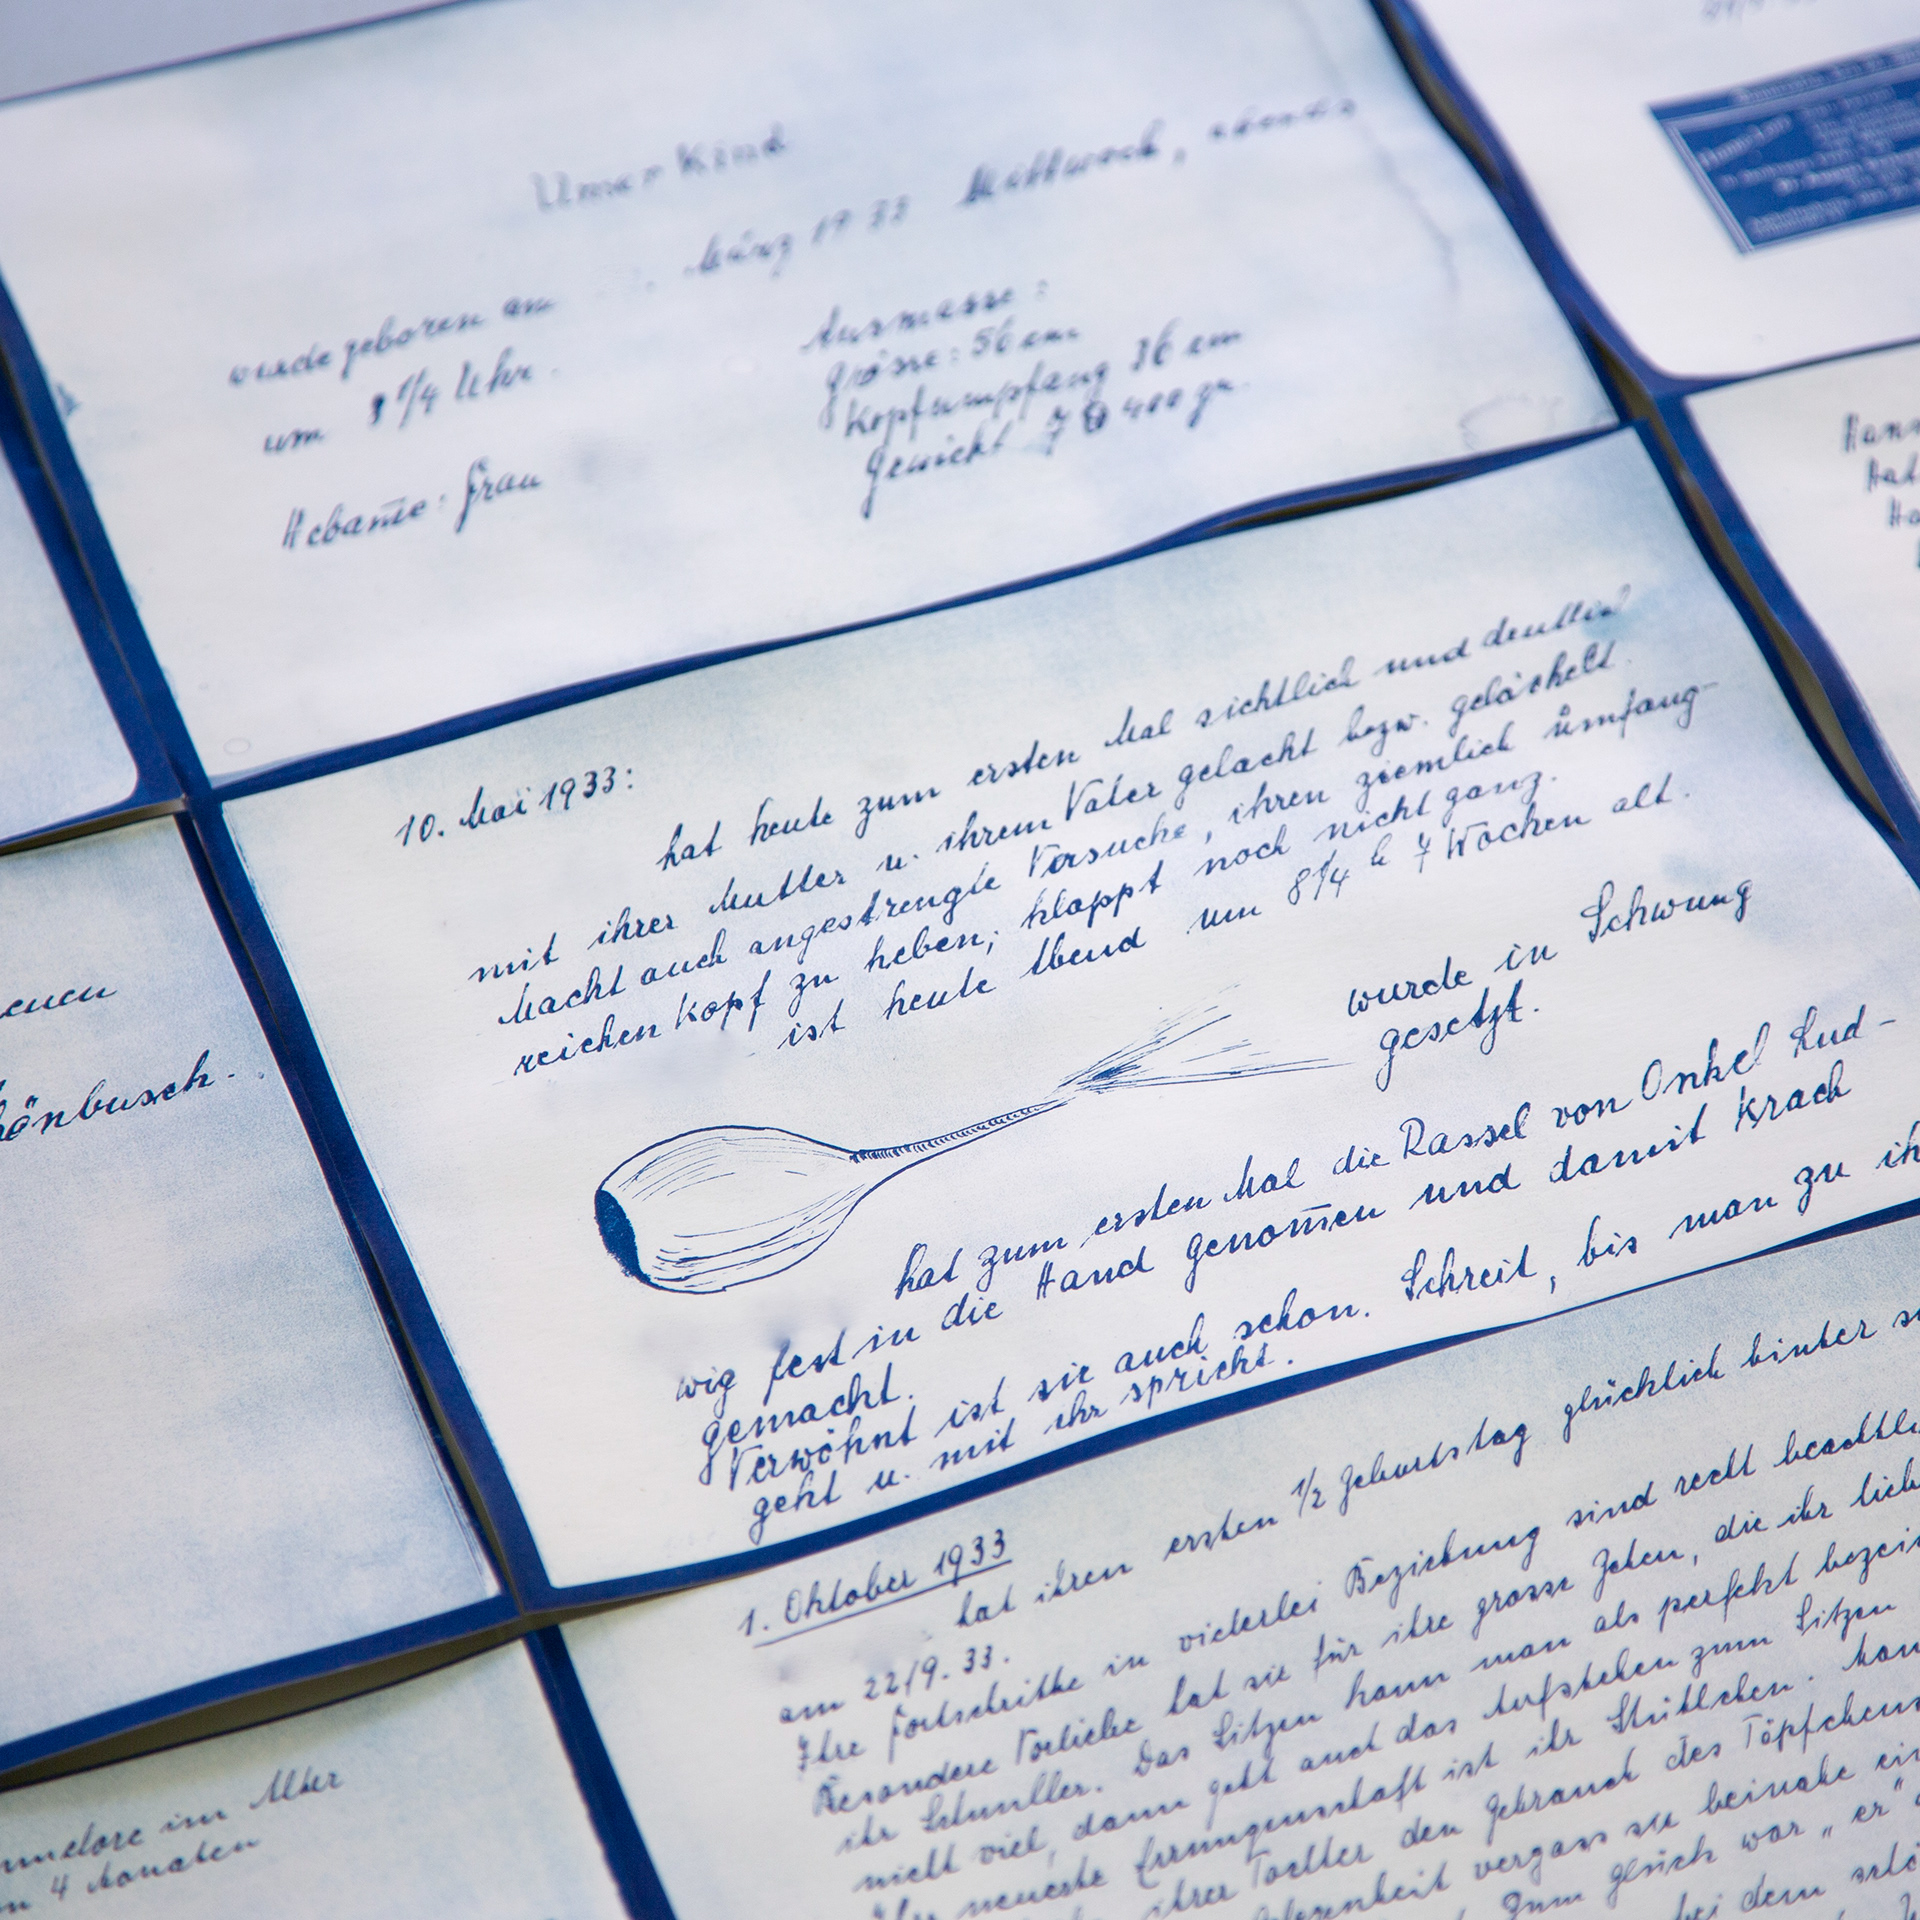 Unser Kind
wurde geboren am März 1933 Mittwoch, abends
um 8 1/4 Uhr.
Ausmasse:
Grösse: 56 cm
Kopfumpfang 36 cm
Gewicht 7 400 gr.
Hebam̄e: Frau
10. Mai 1933:
hat heute zum ersten Mal sichtlich und deutlich
mit ihrer Mutter u. ihrem Vater gelacht bezw. gelächelt.
Macht auch angestrengte Versuche, ihren ziemlich umfang-
reichen Kopf zu heben; klappt noch nicht ganz.
ist heute Abend um 8 1/4 h 7 Wochen alt.
wurde in Schwung
gesetzt.
hat zum ersten Mal die Rassel von Onkel Lud-
wig fest in die Hand genom̄en und damit Krach
gemacht.
Verwöhnt ist sie auch schon. Schreit, bis man zu ih
geht u. mit ihr spricht.
1. Oktober 1933
hat ihren ersten 1/2 Geburtstag glücklich hinter
am 22/9.33.
Ihre Fortschritte in vielerlei Beziehung sind recht beachtli
Besondere Vorliebe hat sie für ihre grosse Zehen, die ihr lieb
ihr Schnuller. Das Sitzen kann man als perfekt bezei
nicht viel, dann geht auch das Aufstehen zum Sitzen
neueste Errungenschaft ist ihr Stühlchen.
ihrer Tochter den Gebrauch des Töpfchens
vergass sie beinahe
Zum Glück war „er"
bei dem
enen
hönbusch.
nnelore im Alter
n 4 Monaten
Hann